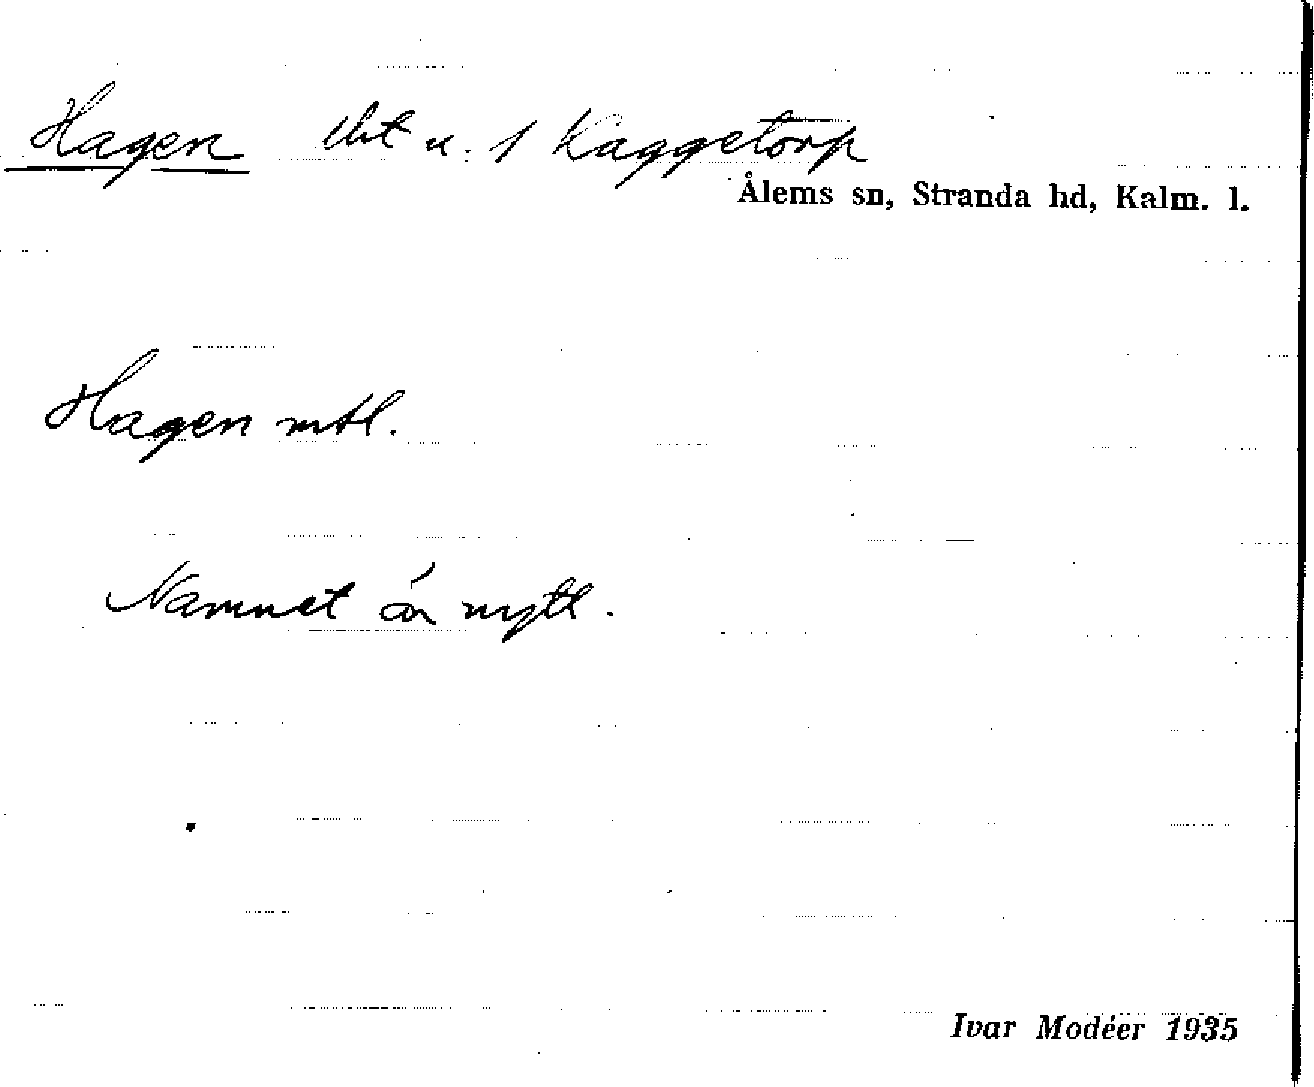 Hagen lht u. 1 Kaggetorp
Ålems sn, Stranda hd, Kalm. l.
Hagen mtl.
Namnet är nytt.
Ivar Modéer 1935